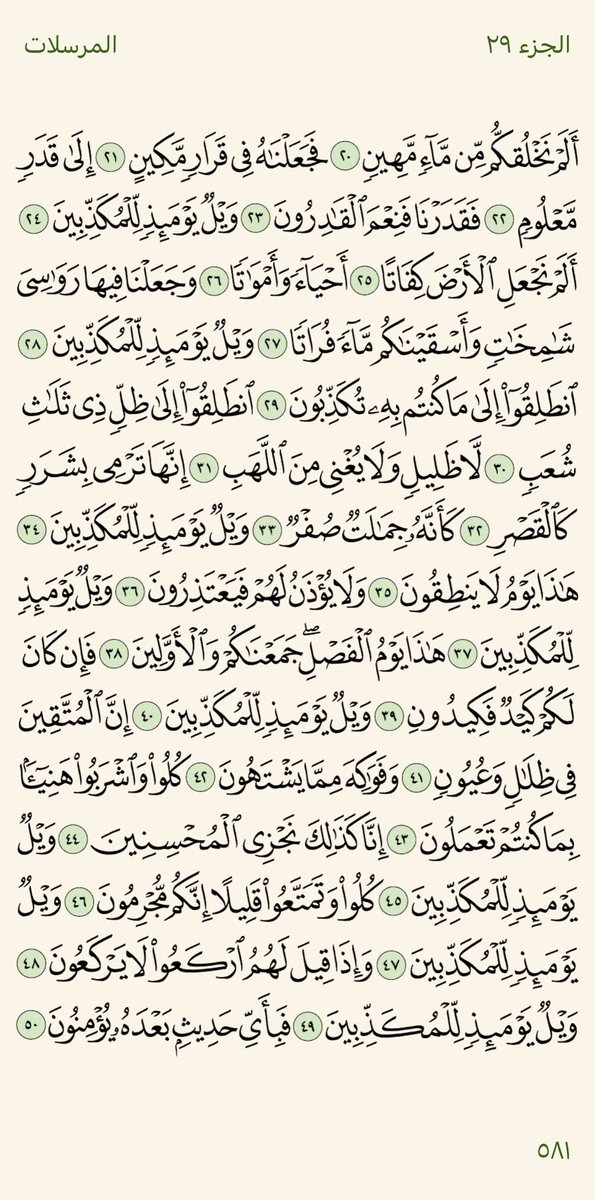 الجزء ٢٩
المرسلات
أَلَمۡ نَخۡلُقكُّم مِّن مَّآءٖ مَّهِينٖ ٢٠ فَجَعَلۡنَٰهُ فِي قَرَارٖ مَّكِينٍ ٢١ إِلَىٰ قَدَرٖ
مَّعۡلُومٖ ٢٢ فَقَدَرۡنَا فَنِعۡمَ ٱلۡقَٰدِرُونَ ٢٣ وَيۡلٞ يَوۡمَئِذٖ لِّلۡمُكَذِّبِينَ ٢٤
أَلَمۡ نَجۡعَلِ ٱلۡأَرۡضَ كِفَاتًا ٢٥ أَحۡيَآءٗ وَأَمۡوَٰتٗا ٢٦ وَجَعَلۡنَا فِيهَا رَوَٰسِيَ
شَٰمِخَٰتٖ وَأَسۡقَيۡنَٰكُم مَّآءٗ فُرَاتٗا ٢٧ وَيۡلٞ يَوۡمَئِذٖ لِّلۡمُكَذِّبِينَ ٢٨
ٱنطَلِقُوٓاْ إِلَىٰ مَا كُنتُم بِهِۦ تُكَذِّبُونَ ٢٩ ٱنطَلِقُوٓاْ إِلَىٰ ظِلّٖ ذِي ثَلَٰثِ
شُعَبٖ ٣٠ لَّا ظَلِيلٖ وَلَا يُغۡنِي مِنَ ٱللَّهَبِ ٣١ إِنَّهَا تَرۡمِي بِشَرَرٖ
كَٱلۡقَصۡرِ ٣٢ كَأَنَّهُۥ جِمَٰلَتٞ صُفۡرٞ ٣٣ وَيۡلٞ يَوۡمَئِذٖ لِّلۡمُكَذِّبِينَ ٣٤
هَٰذَا يَوۡمُ لَا يَنطِقُونَ ٣٥ وَلَا يُؤۡذَنُ لَهُمۡ فَيَعۡتَذِرُونَ ٣٦ وَيۡلٞ يَوۡمَئِذٖ
لِّلۡمُكَذِّبِينَ ٣٧ هَٰذَا يَوۡمُ ٱلۡفَصۡلِۖ جَمَعۡنَٰكُمۡ وَٱلۡأَوَّلِينَ ٣٨ فَإِن كَانَ
لَكُمۡ كَيۡدٞ فَكِيدُونِ ٣٩ وَيۡلٞ يَوۡمَئِذٖ لِّلۡمُكَذِّبِينَ ٤٠ إِنَّ ٱلۡمُتَّقِينَ
فِي ظِلَٰلٖ وَعُيُونٖ ٤١ وَفَوَٰكِهَ مِمَّا يَشۡتَهُونَ ٤٢ كُلُواْ وَٱشۡرَبُواْ هَنِيٓـَٔۢا
بِمَا كُنتُمۡ تَعۡمَلُونَ ٤٣ إِنَّا كَذَٰلِكَ نَجۡزِي ٱلۡمُحۡسِنِينَ ٤٤ وَيۡلٞ
يَوۡمَئِذٖ لِّلۡمُكَذِّبِينَ ٤٥ كُلُواْ وَتَمَتَّعُواْ قَلِيلًا إِنَّكُم مُّجۡرِمُونَ ٤٦ وَيۡلٞ
يَوۡمَئِذٖ لِّلۡمُكَذِّبِينَ ٤٧ وَإِذَا قِيلَ لَهُمُ ٱرۡكَعُواْ لَا يَرۡكَعُونَ ٤٨
وَيۡلٞ يَوۡمَئِذٖ لِّلۡمُكَذِّبِينَ ٤٩ فَبِأَيِّ حَدِيثِۭ بَعۡدَهُۥ يُؤۡمِنُونَ ٥٠
٥٨١